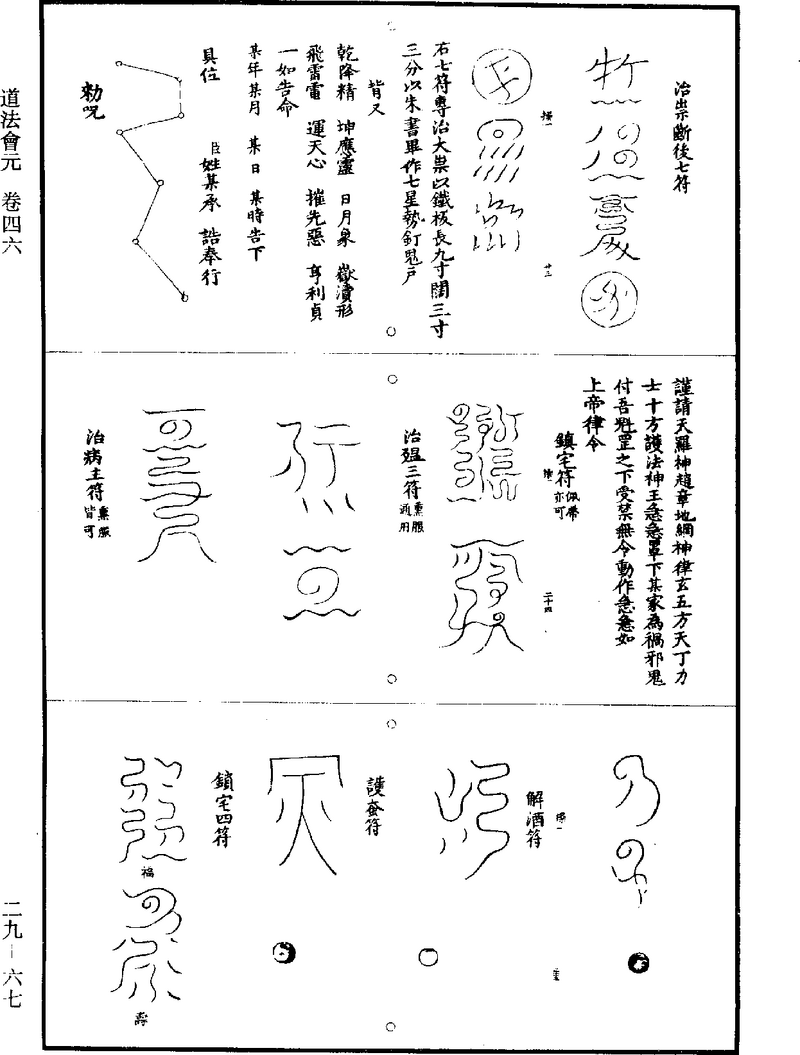 道法會元 卷四六
二九－六七
治祟斷後七符
右七符專治大祟以鐵板長九寸闊三寸
三分以朱書畢作七星勢釘鬼戶
背又
乾降精 坤應靈 日月象 嶽瀆形
飛雷電 運天心 摧先惡 亨利貞
一如告命
某年某月 某日 某時告下
具位 臣姓某承 誥奉行
勑咒
謹請天羅神趙章地網神律玄五方天丁力
士十方護法神王急急罩下某家為禍邪鬼
付吾魁罡之下受禁無令動作急急如
上帝律令
鎮宅符 佩帶亦可
二十四
治瘟三符 熏服通用
治病主符 熏服皆可
解酒符
護蚕符
鎮宅四符
福
壽